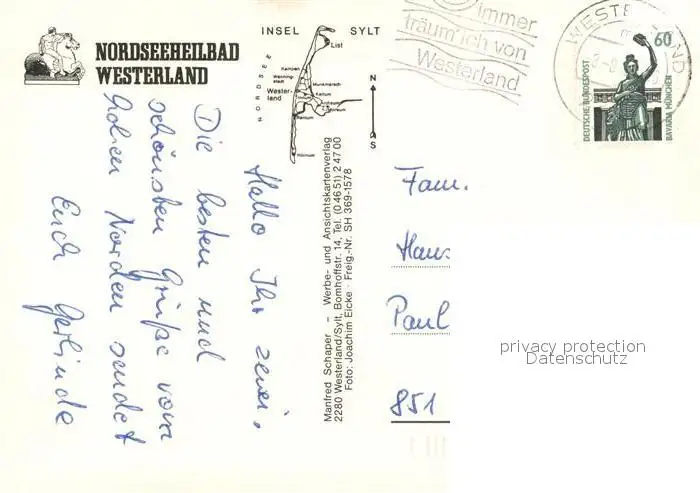 NORDSEEHEILBAD
WESTERLAND
INSEL SYLT
List
Kampen
Munkmarsch
Wester-
land
Keitum
Rantum
Hörnum
NORDSEE
N
S
immer
träum' ich von
Westerland
60
DEUTSCHE BUNDESPOST
BAVARIA MÜNCHEN
Hallo Ihr zwei,
Die besten und
schönsten Grüße vom
hohen Norden sendet
Euch Gerlinde
Manfred Schaper – Werbe- und Ansichtskartenverlag
2280 Westerland/Sylt, Bomhoffstr. 14, Tel. (0 46 51) 2 47 00
Foto: Joachim Eicke - Freig.-Nr. SH 369-1578
Fam.
Hans
Paul
851
privacy protection
Datenschutz